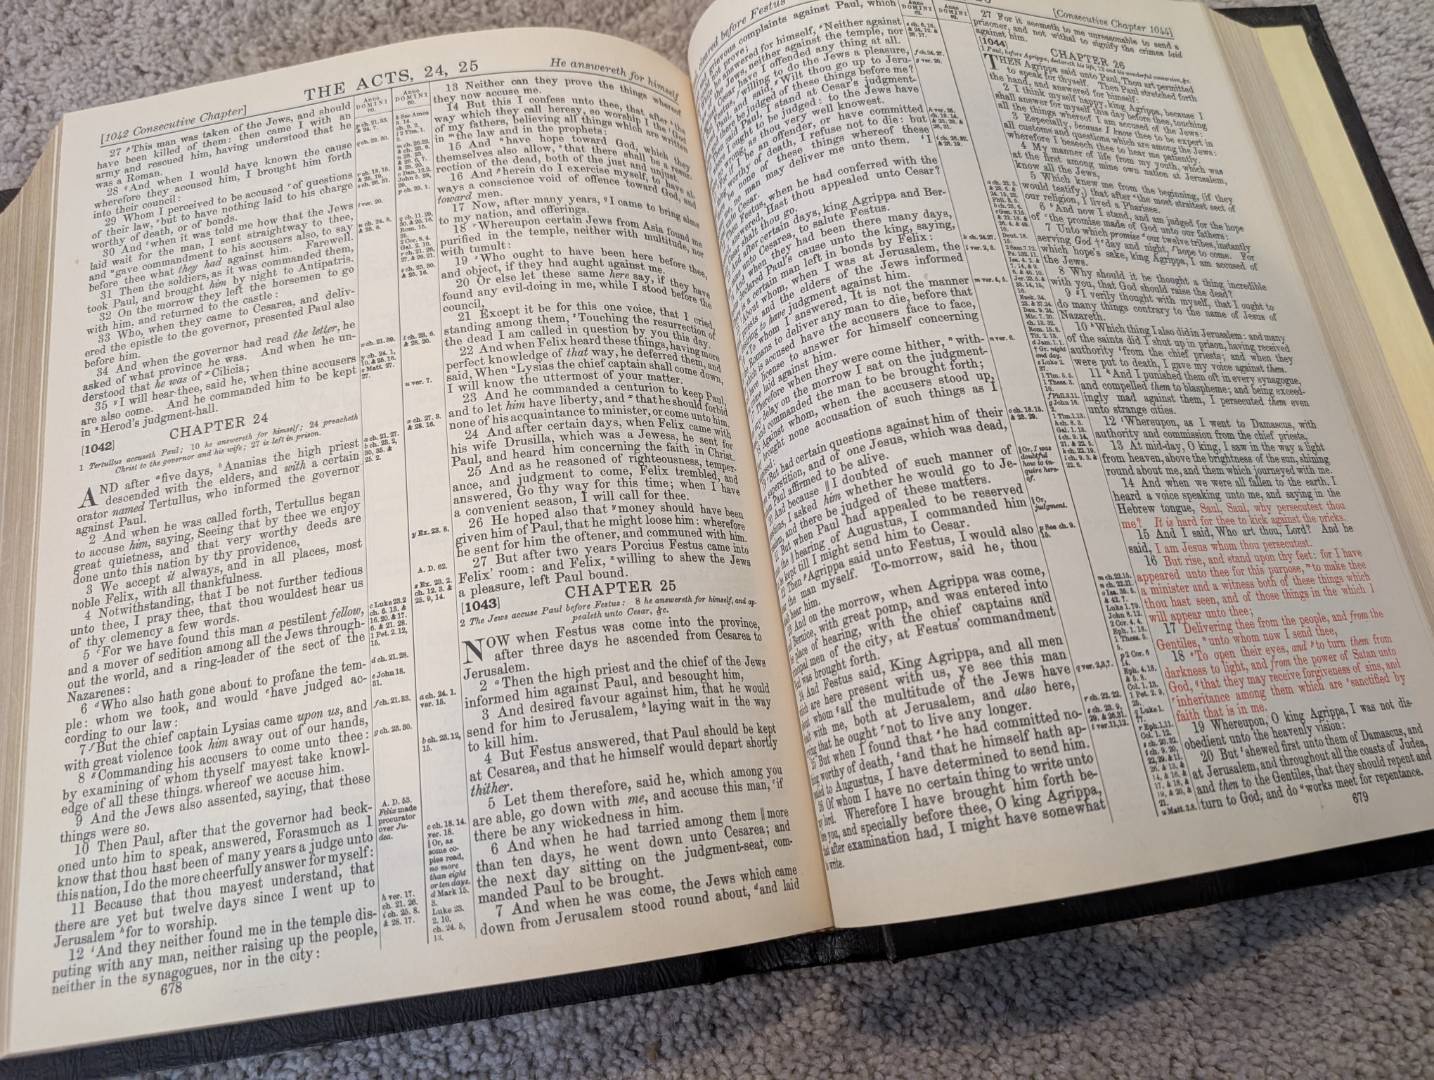 [1042 Consecutive Chapter]
THE ACTS, 24, 25
He answereth for himself
27 This man was taken of the Jews, and should
have been killed of them: then came I with an
army and rescued him, having understood that he
was a Roman.
28 And when I would have known the cause
wherefore they accused him, I brought him forth
into their council:
29 Whom I perceived to be accused of questions
of their law, but to have nothing laid to his charge
worthy of death, or of bonds.
30 And when it was told me how that the Jews
laid wait for the man, I sent straightway to thee,
and gave commandment to his accusers also, to say
before thee what they had against him. Farewell.
31 Then the soldiers, as it was commanded them,
took Paul, and brought him by night to Antipatris.
32 On the morrow they left the horsemen to go
with him, and returned to the castle:
33 Who, when they came to Cesarea, and deliv-
ered the epistle to the governor, presented Paul also
before him.
34 And when the governor had read the letter, he
asked of what province he was. And when he un-
derstood that he was of Cilicia;
35 I will hear thee, said he, when thine accusers
are also come. And he commanded him to be kept
in Herod's judgment-hall.
CHAPTER 24
[1042]
1 Tertullus accuseth Paul; 10 he answereth for himself; 24 preacheth
Christ to the governor and his wife; 27 is left in prison.
AND after five days, Ananias the high priest
descended with the elders, and with a certain
orator named Tertullus, who informed the governor
against Paul.
2 And when he was called forth, Tertullus began
to accuse him, saying, Seeing that by thee we enjoy
great quietness, and that very worthy deeds are
done unto this nation by thy providence,
3 We accept it always, and in all places, most
noble Felix, with all thankfulness.
4 Notwithstanding, that I be not further tedious
unto thee, I pray thee, that thou wouldest hear us
of thy clemency a few words.
5 For we have found this man a pestilent fellow,
and a mover of sedition among all the Jews through-
out the world, and a ring-leader of the sect of the
Nazarenes:
6 Who also hath gone about to profane the tem-
ple: whom we took, and would have judged ac-
cording to our law:
7 But the chief captain Lysias came upon us, and
with great violence took him away out of our hands,
8 Commanding his accusers to come unto thee:
by examining of whom thyself mayest take knowl-
edge of all these things, whereof we accuse him.
9 And the Jews also assented, saying, that these
things were so.
10 Then Paul, after that the governor had beck-
oned unto him to speak, answered, Forasmuch as I
know that thou hast been of many years a judge unto
this nation, I do the more cheerfully answer for myself:
11 Because that thou mayest understand, that
there are yet but twelve days since I went up to
Jerusalem for to worship.
12 And they neither found me in the temple dis-
puting with any man, neither raising up the people,
neither in the synagogues, nor in the city:
678
A. D. 53.
Felix made
procurator
over Ju-
dea.
A. D. 62.
13 Neither can they prove the things whereof
they now accuse me.
14 But this I confess unto thee, that after the
way which they call heresy, so worship I the
of my fathers, believing all things which are written
in the law and in the prophets:
15 And have hope toward God, which they
themselves also allow, that there shall be a resur-
rection of the dead, both of the just and unjust.
16 And herein do I exercise myself, to have al-
ways a conscience void of offence toward God, and
toward men.
17 Now, after many years, I came to bring alms
to my nation, and offerings.
18 Whereupon certain Jews from Asia found me
purified in the temple, neither with multitude, nor
with tumult:
19 Who ought to have been here before thee,
and object, if they had aught against me.
20 Or else let these same here say, if they have
found any evil-doing in me, while I stood before the
council,
21 Except it be for this one voice, that I cried,
standing among them, Touching the resurrection of
the dead I am called in question by you this day.
22 And when Felix heard these things, having more
perfect knowledge of that way, he deferred them, and
said, When Lysias the chief captain shall come down,
I will know the uttermost of your matter.
23 And he commanded a centurion to keep Paul,
and to let him have liberty, and that he should forbid
none of his acquaintance to minister, or come unto him.
24 And after certain days, when Felix came with
his wife Drusilla, which was a Jewess, he sent for
Paul, and heard him concerning the faith in Christ.
25 And as he reasoned of righteousness, temper-
ance, and judgment to come, Felix trembled, and
answered, Go thy way for this time; when I have
a convenient season, I will call for thee.
26 He hoped also that money should have been
given him of Paul, that he might loose him: wherefore
he sent for him the oftener, and communed with him.
27 But after two years Porcius Festus came into
Felix' room: and Felix, willing to shew the Jews
a pleasure, left Paul bound.
CHAPTER 25
[1043]
2 The Jews accuse Paul before Festus: 8 he answereth for himself, and ap-
pealeth unto Cesar, &c.
NOW when Festus was come into the province,
after three days he ascended from Cesarea to
Jerusalem.
2 Then the high priest and the chief of the Jews
informed him against Paul, and besought him,
3 And desired favour against him, that he would
send for him to Jerusalem, laying wait in the way
to kill him.
4 But Festus answered, that Paul should be kept
at Cesarea, and that he himself would depart shortly
thither.
5 Let them therefore, said he, which among you
are able, go down with me, and accuse this man, if
there be any wickedness in him.
6 And when he had tarried among them more
than ten days, he went down unto Cesarea; and
the next day sitting on the judgment-seat, com-
manded Paul to be brought.
7 And when he was come, the Jews which came
down from Jerusalem stood round about, and laid
before Festus
[Consecutive Chapter 1044]
complaints against Paul, which
prove;
answered for himself, Neither against
Jews, neither against the temple, nor
have I offended any thing at all.
willing to do the Jews a pleasure,
said, Wilt thou go up to Jeru-
be judged of these things before me?
said Paul, I stand at Cesar's judgment-
ought to be judged: to the Jews have
as thou very well knowest.
be an offender, or have committed
of death, I refuse not to die: but
none of these things whereof these
man may deliver me unto them. I
Festus, when he had conferred with the
Hast thou appealed unto Cesar?
thou go.
certain days, king Agrippa and Ber-
Cesarea, to salute Festus.
they had been there many days,
declared Paul's cause unto the king, saying,
a certain man left in bonds by Felix:
whom, when I was at Jerusalem, the
and the elders of the Jews informed
to have judgment against him.
whom I answered, It is not the manner
to deliver any man to die, before that
accused have the accusers face to face,
license to answer for himself concerning
laid against him.
when they were come hither, with-
delay on the morrow I sat on the judgment-
commanded the man to be brought forth;
Against whom, when the accusers stood up,
brought none accusation of such things as I
had certain questions against him of their
superstition, and of one Jesus, which was dead,
Paul affirmed to be alive.
And because I doubted of such manner of
I asked him whether he would go to Je-
and there be judged of these matters.
But when Paul had appealed to be reserved
hearing of Augustus, I commanded him
kept till I might send him to Cesar.
Then Agrippa said unto Festus, I would also
the man myself. To-morrow, said he, thou
hear him.
And on the morrow, when Agrippa was come,
Bernice, with great pomp, and was entered into
place of hearing, with the chief captains and
principal men of the city, at Festus' commandment
was brought forth.
And Festus said, King Agrippa, and all men
are here present with us, ye see this man
whom all the multitude of the Jews have
with me, both at Jerusalem, and also here,
that he ought not to live any longer.
But when I found that he had committed no-
worthy of death, and that he himself hath ap-
to Augustus, I have determined to send him.
Of whom I have no certain thing to write unto
lord. Wherefore I have brought him forth be-
you, and specially before thee, O king Agrippa,
after examination had, I might have somewhat
write.
27 For it seemeth to me unreasonable to send a
prisoner, and not withal to signify the crimes laid
against him.
[1044]
CHAPTER 26
THEN Agrippa said unto Paul, Thou art permitted
to speak for thyself. Then Paul stretched forth
the hand, and answered for himself:
2 I think myself happy, king Agrippa, because I
shall answer for myself this day before thee, touching
all the things whereof I am accused of the Jews:
3 Especially, because I know thee to be expert in
all customs and questions which are among the Jews:
wherefore I beseech thee to hear me patiently.
4 My manner of life from my youth, which was
at the first among mine own nation at Jerusalem,
know all the Jews,
5 Which knew me from the beginning, (if they
would testify,) that after the most straitest sect of
our religion, I lived a Pharisee.
6 And now I stand, and am judged for the hope
of the promise made of God unto our fathers:
7 Unto which promise our twelve tribes, instantly
serving God day and night, hope to come. For
which hope's sake, king Agrippa, I am accused of
the Jews.
8 Why should it be thought a thing incredible
with you, that God should raise the dead?
9 I verily thought with myself, that I ought to
do many things contrary to the name of Jesus of
Nazareth.
10 Which thing I also did in Jerusalem: and many
of the saints did I shut up in prison, having received
authority from the chief priests; and when they
were put to death, I gave my voice against them.
11 And I punished them oft in every synagogue,
and compelled them to blaspheme; and being exceed-
ingly mad against them, I persecuted them even
unto strange cities.
12 Whereupon, as I went to Damascus, with
authority and commission from the chief priests,
13 At mid-day, O king, I saw in the way a light
from heaven, above the brightness of the sun, shining
round about me, and them which journeyed with me.
14 And when we were all fallen to the earth, I
heard a voice speaking unto me, and saying in the
Hebrew tongue, Saul, Saul, why persecutest thou
me? It is hard for thee to kick against the pricks.
15 And I said, Who art thou, Lord? And he
said, I am Jesus whom thou persecutest.
16 But rise, and stand upon thy feet: for I have
appeared unto thee for this purpose, to make thee
a minister and a witness both of these things which
thou hast seen, and of those things in the which I
will appear unto thee;
17 Delivering thee from the people, and from the
Gentiles, unto whom now I send thee,
18 To open their eyes, and to turn them from
darkness to light, and from the power of Satan unto
God, that they may receive forgiveness of sins, and
inheritance among them which are sanctified by
faith that is in me.
19 Whereupon, O king Agrippa, I was not dis-
obedient unto the heavenly vision:
20 But shewed first unto them of Damascus, and
at Jerusalem, and throughout all the coasts of Judea,
and then to the Gentiles, that they should repent and
turn to God, and do works meet for repentance.
679